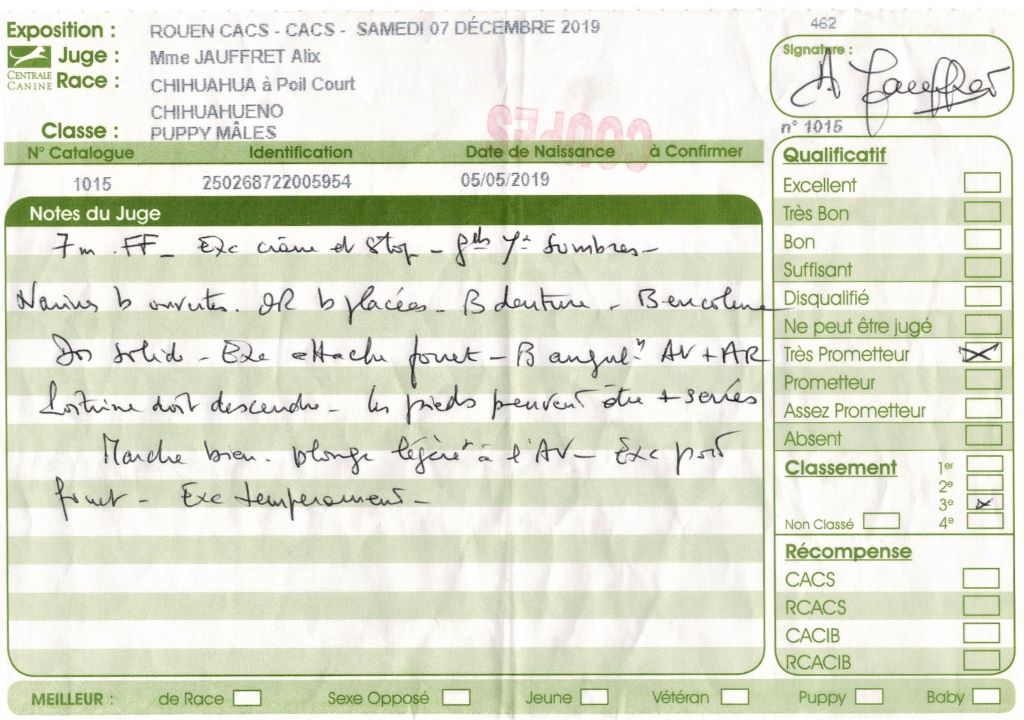 Exposition : ROUEN CACS - CACS - SAMEDI 07 DÉCEMBRE 2019
462
Juge : Mme JAUFFRET Alix
Signature :
A Jauffret
CENTRALE CANINE
Race : CHIHUAHUA à Poil Court
CHIHUAHUENO
Classe : PUPPY MÂLES
n° 1015
N° Catalogue Identification Date de Naissance à Confirmer
1015 250268722005954 05/05/2019
Notes du Juge
7 m . FF _ Exc crâne et stop - gds Yx sombres -
Narines b ouvertes. OR b placées - B denture - B encolure
Dos solid - Exc attache fouet - B angul° AV + AR
Poitrine doit descendre - les pieds peuvent être + serrés
Marche bien - plonge légèrt à l'AV - Exc port
fouet - Exc temperament -
Qualificatif
Excellent
Très Bon
Bon
Suffisant
Disqualifié
Ne peut être jugé
Très Prometteur X
Prometteur
Assez Prometteur
Absent
Classement 1er
2e
3e X
Non Classé 4e
Récompense
CACS
RCACS
CACIB
RCACIB
MEILLEUR : de Race Sexe Opposé Jeune Vétéran Puppy Baby